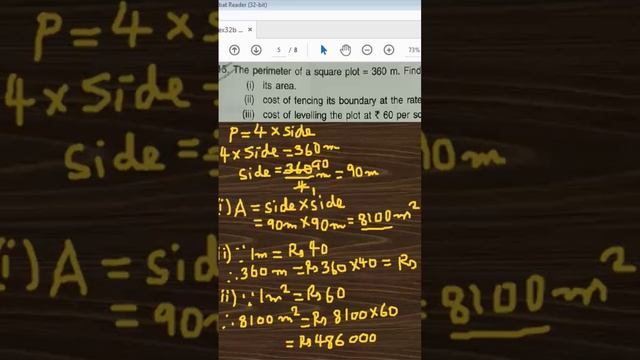 bat Reader (32-bit)
ex32b ...
5 / 8
73%
15. The perimeter of a square plot = 360 m. Find
(i) its area.
(ii) cost of fencing its boundary at the rate
(iii) cost of levelling the plot at ₹ 60 per sq
P = 4 × side
4 × side = 360 m
side = 360 90 / 4 1 m = 90 m
i) A = side × side
= 90m × 90m = 8100 m²
ii) ∵ 1m = Rs 40
∴ 360 m = Rs 360×40 = Rs
ii) ∵ 1m² = Rs 60
∴ 8100 m² = Rs 8100×60
= Rs 486000
P = 4
4 × Side
side =
(i) A = sid
= 90m
8100 m²